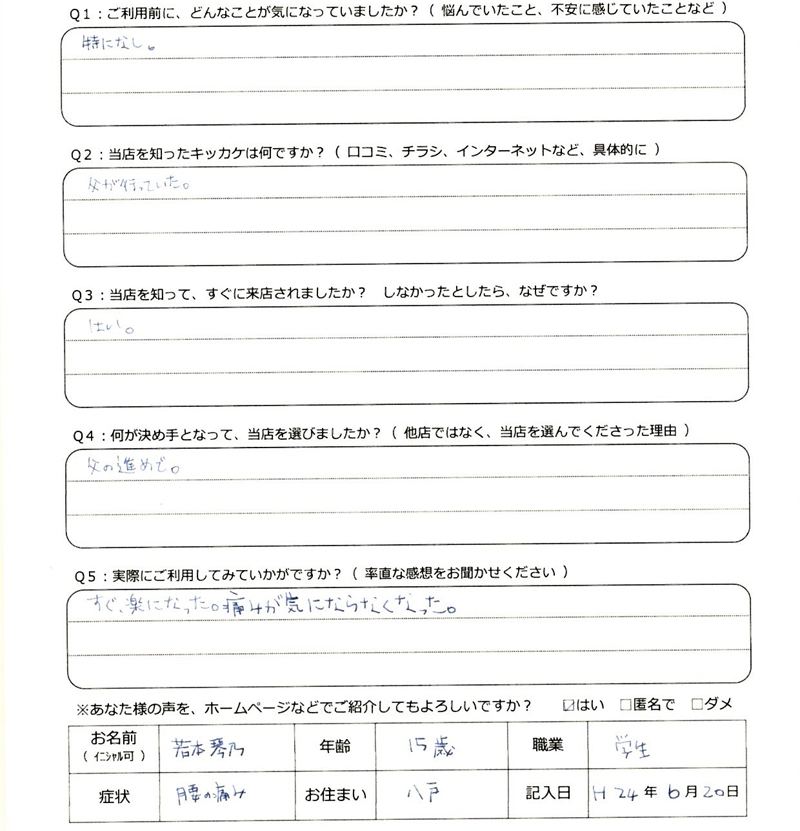 Q1：ご利用前に、どんなことが気になっていましたか？（ 悩んでいたこと、不安に感じていたことなど ）
特になし。
Q2：当店を知ったキッカケは何ですか？（ 口コミ、チラシ、インターネットなど、具体的に ）
父が行っていた。
Q3：当店を知って、すぐに来店されましたか？　しなかったとしたら、なぜですか？
はい。
Q4：何が決め手となって、当店を選びましたか？（ 他店ではなく、当店を選んでくださった理由 ）
父の進めで。
Q5：実際にご利用してみていかがですか？（ 率直な感想をお聞かせください ）
すぐ、楽になった。痛みが気にならなくなった。
※あなた様の声を、ホームページなどでご紹介してもよろしいですか？　☑はい　□匿名で　□ダメ
お名前（ イニシャル可 ） 若本琴乃 年齢 15歳 職業 学生
症状 腰の痛み お住まい 八戸 記入日 H 24 年 6 月 20 日